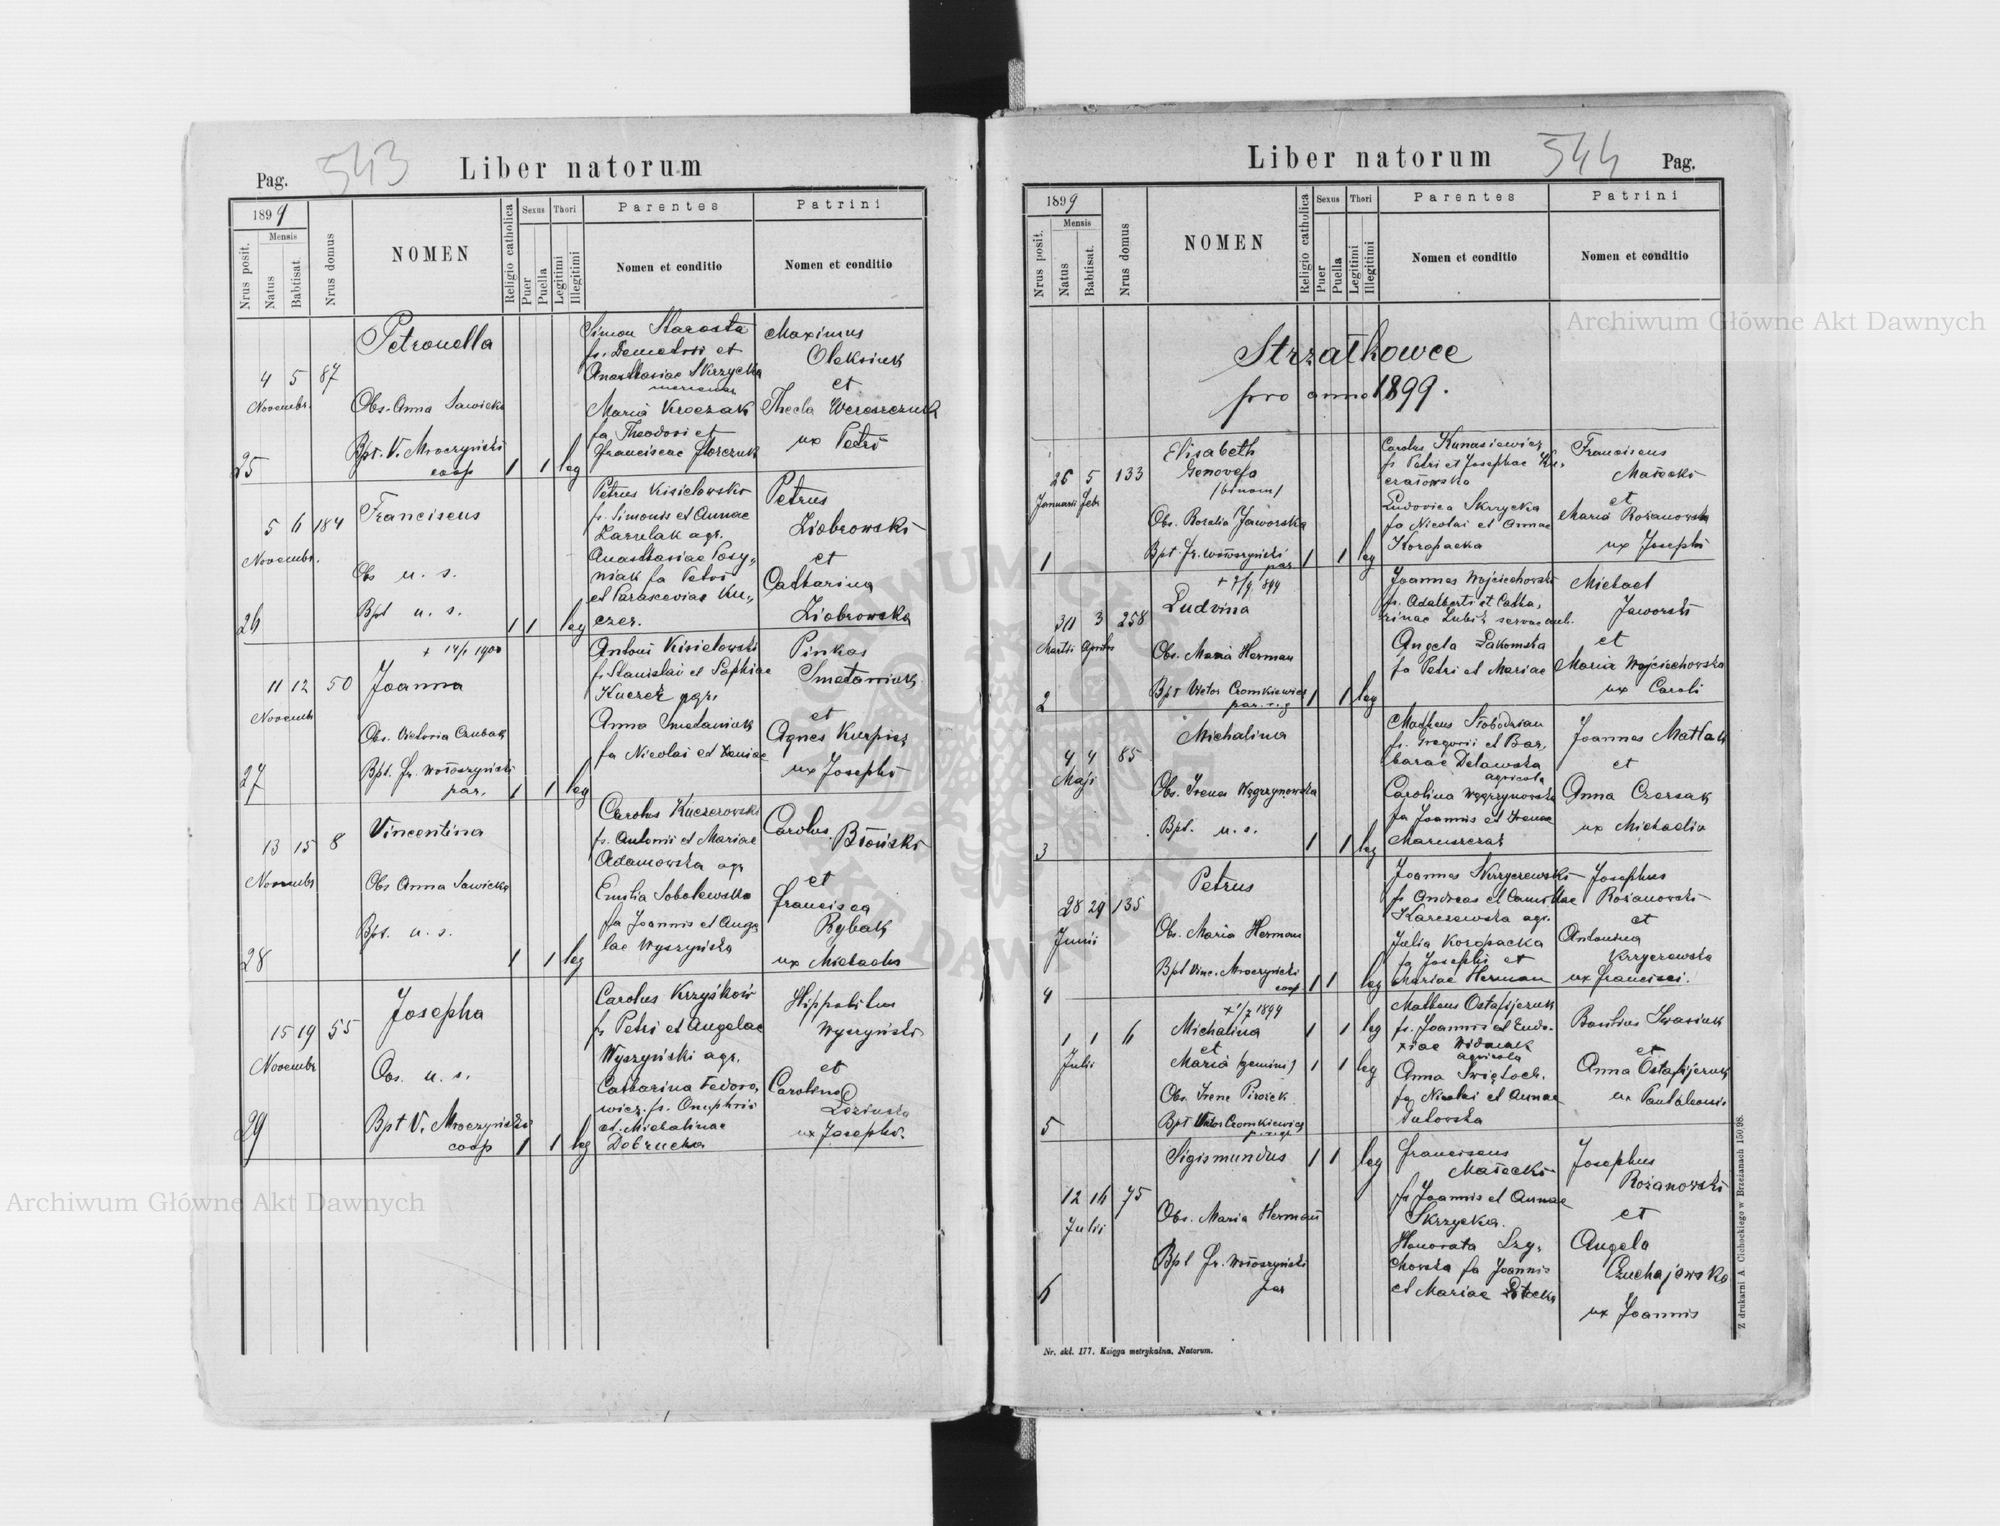 Pag. 543 Liber natorum
1899
Mensis
Nrus posit.
Natus
Babtisat.
Nrus domus
NOMEN
Religio catholica
Sexus
Puer
Puella
Thori
Legitimi
Illegitimi
Parentes
Nomen et conditio
Patrini
Nomen et conditio
25
4 5 87
Novembr.
Petronella
Obs. Anna Sawicka
Bpt. V. Mroczyński
coop
1 1 leg
Simon Starosta
fs. Demetrii et
Anastasiae Skrzycka
Maria Kroczak
fa Theodori et
Franciscae
Maximus
Oleksiuk
et
Thecla Wereszczuk
ux Petri
26
5 6 184
Novembr.
Franciscus
Obs u. s.
Bpt u. s.
1 1 leg
Petrus Kisielowski
fs. Simonis et Annae
agr.
Anastasiae Posy„
niak fa Petri
et Parascevias Ku„
czer.
Petrus
Ziobrowski
et
Catharina
Ziobrowska
27
11 12 50
Novembr
+ 14/1 1900
Joanna
Obs. Victoria Czubak
Bpt. Fr. Wołoszyński
par.
1 1 leg
Antoni Kisielowski
fs Stanislai et Sophiae
Kuczer agr.
Anna Smetaniuk
fa Nicolai et Xeniae
Pinkas
Smetaniuk
et
Agnes Kurpisz
ux Josephi
28
13 15 8
Novembr
Vincentina
Obs Anna Sawicka
Bpt. u. s.
1 1 leg
Carolus Kuczerowski
fs. Antonii et Mariae
Adamowska agr
Emilia Sobolewska
fa Joannis et Ange
lae Wyszyńska
Carolus
Błoński
et
Francisca
Rybak
ux Michaelis
29
15 19 55
Novembr
Josepha
Obs. u. s.
Bpt V. Mroczyński
coop
1 1 leg
Carolus Krzyśków
fs Petri et Angelae
Wyszyński agr.
Catharina Fedoro,
wicz. fs. Onuphrii
et Michalinae
Dobrucka
Hippolitus
Wyszyński
et
Carolina
Łozińska
ux Josephi.
Liber natorum 544 Pag.
1899
Mensis
Nrus posit.
Natus
Babtisat.
Nrus domus
NOMEN
Religio catholica
Sexus
Puer
Puella
Thori
Legitimi
Illegitimi
Parentes
Nomen et conditio
Patrini
Nomen et conditio
Strzałkowce
pro anno 1899.
1
26 5 133
Januarii Feb.
Elisabeth
Genovefa
(binom)
Obs. Rozalia Jaworska
Bpt. Fr. Wołoszyński
par
1 1 leg
Carolus Kunasiewicz
fs Petri et Josephae
Ludovica Skrzycka
fa Nicolai et Annae
Koropacka
Franciscus
Małecki
et
Maria Rożanowska
ux Josephi
2
30 3 258
Martii Aprilis
Ludvina
Obs. Maria Herman
Bpt Victor Cromkiewicz
1 1 leg
Joannes Wojciechowski
fs. Adalberti et Catha,
rinae
Angela Łakomska
fa Petri et Mariae
Michael
Jaworski
et
Maria Wojciechowska
ux Caroli
3
4 4 85
Maji
Michalina
Obs. Irena Węgrzynowska
Bpt. u. s.
1 1 leg
Matheus Słobodzian
fs. Gregorii et Bar,
barae Delawska
agricola
Carolina Węgrzynowska
fa Joannis et Irenae
Maruszczak
Joannes Matlak
et
Anna Czersak
ux Michaelis
4
28 29 135
Junii
Petrus
Obs. Maria Herman
Bpt Vinc. Mroczyński
coop
1 1 leg
Joannes Krzyczewski
fs Andreas et Camillae
Karczewska agr.
Julia Koropacka
fa Josephi et
Mariae Herman
Josephus
Rożanowski
et
Antonina
Krzyczewska
ux Francisci.
5
1 1 6
Julii
+ 1/7 1899
Michalina 1 1 leg
et
Maria (gemini) 1 1 leg
Obs. Irene Pirożek
Bpt Victor Cromkiewicz
Matheus Ostafijczuk
fs. Joannis et Eudo.
xiae Widniak
agricola
Anna Swiętoch.
fa Nicolai et Annae
Dutowska
Basilius Iwasiuk
et
Anna Ostafijczuk
ux Pantaleonis
6
12 16 75
Julii
Sigismundus
1 1 leg
Obs. Maria Herman
Bpt Fr. Wołoszyński
par
Franciscus
Małecki
fs Joannis et Annae
Skrzycka.
Honorata Szy,
chowska fa Joannis
et Mariae
Josephus
Rożanowski
et
Angela
Czuchajowska
ux Joannis
Nr. skl. 177. Księga metrykalna. Natorum.
Z drukarni A. Cichockiego w Brzeżanach 150/98.
Archiwum Główne Akt Dawnych
Archiwum Główne Akt Dawnych
ARCHIWUM GŁÓWNE AKT DAWNYCH